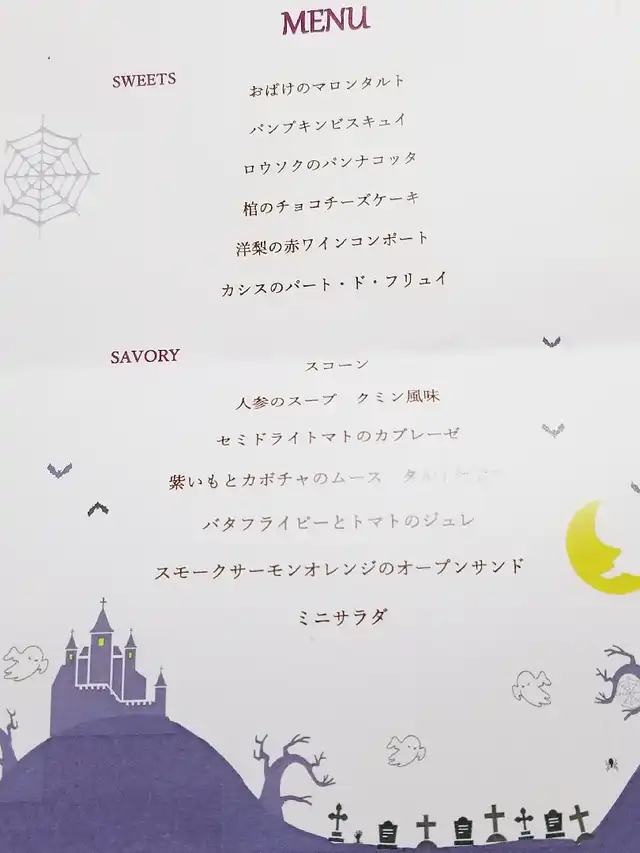 MENU
SWEETS
おばけのマロンタルト
パンプキンビスキュイ
ロウソクのパンナコッタ
棺のチョコチーズケーキ
洋梨の赤ワインコンポート
カシスのパート・ド・フリュイ
SAVORY
スコーン
人参のスープ　クミン風味
セミドライトマトのカプレーゼ
紫いもとカボチャのムース
バタフライピーとトマトのジュレ
スモークサーモンオレンジのオープンサンド
ミニサラダ